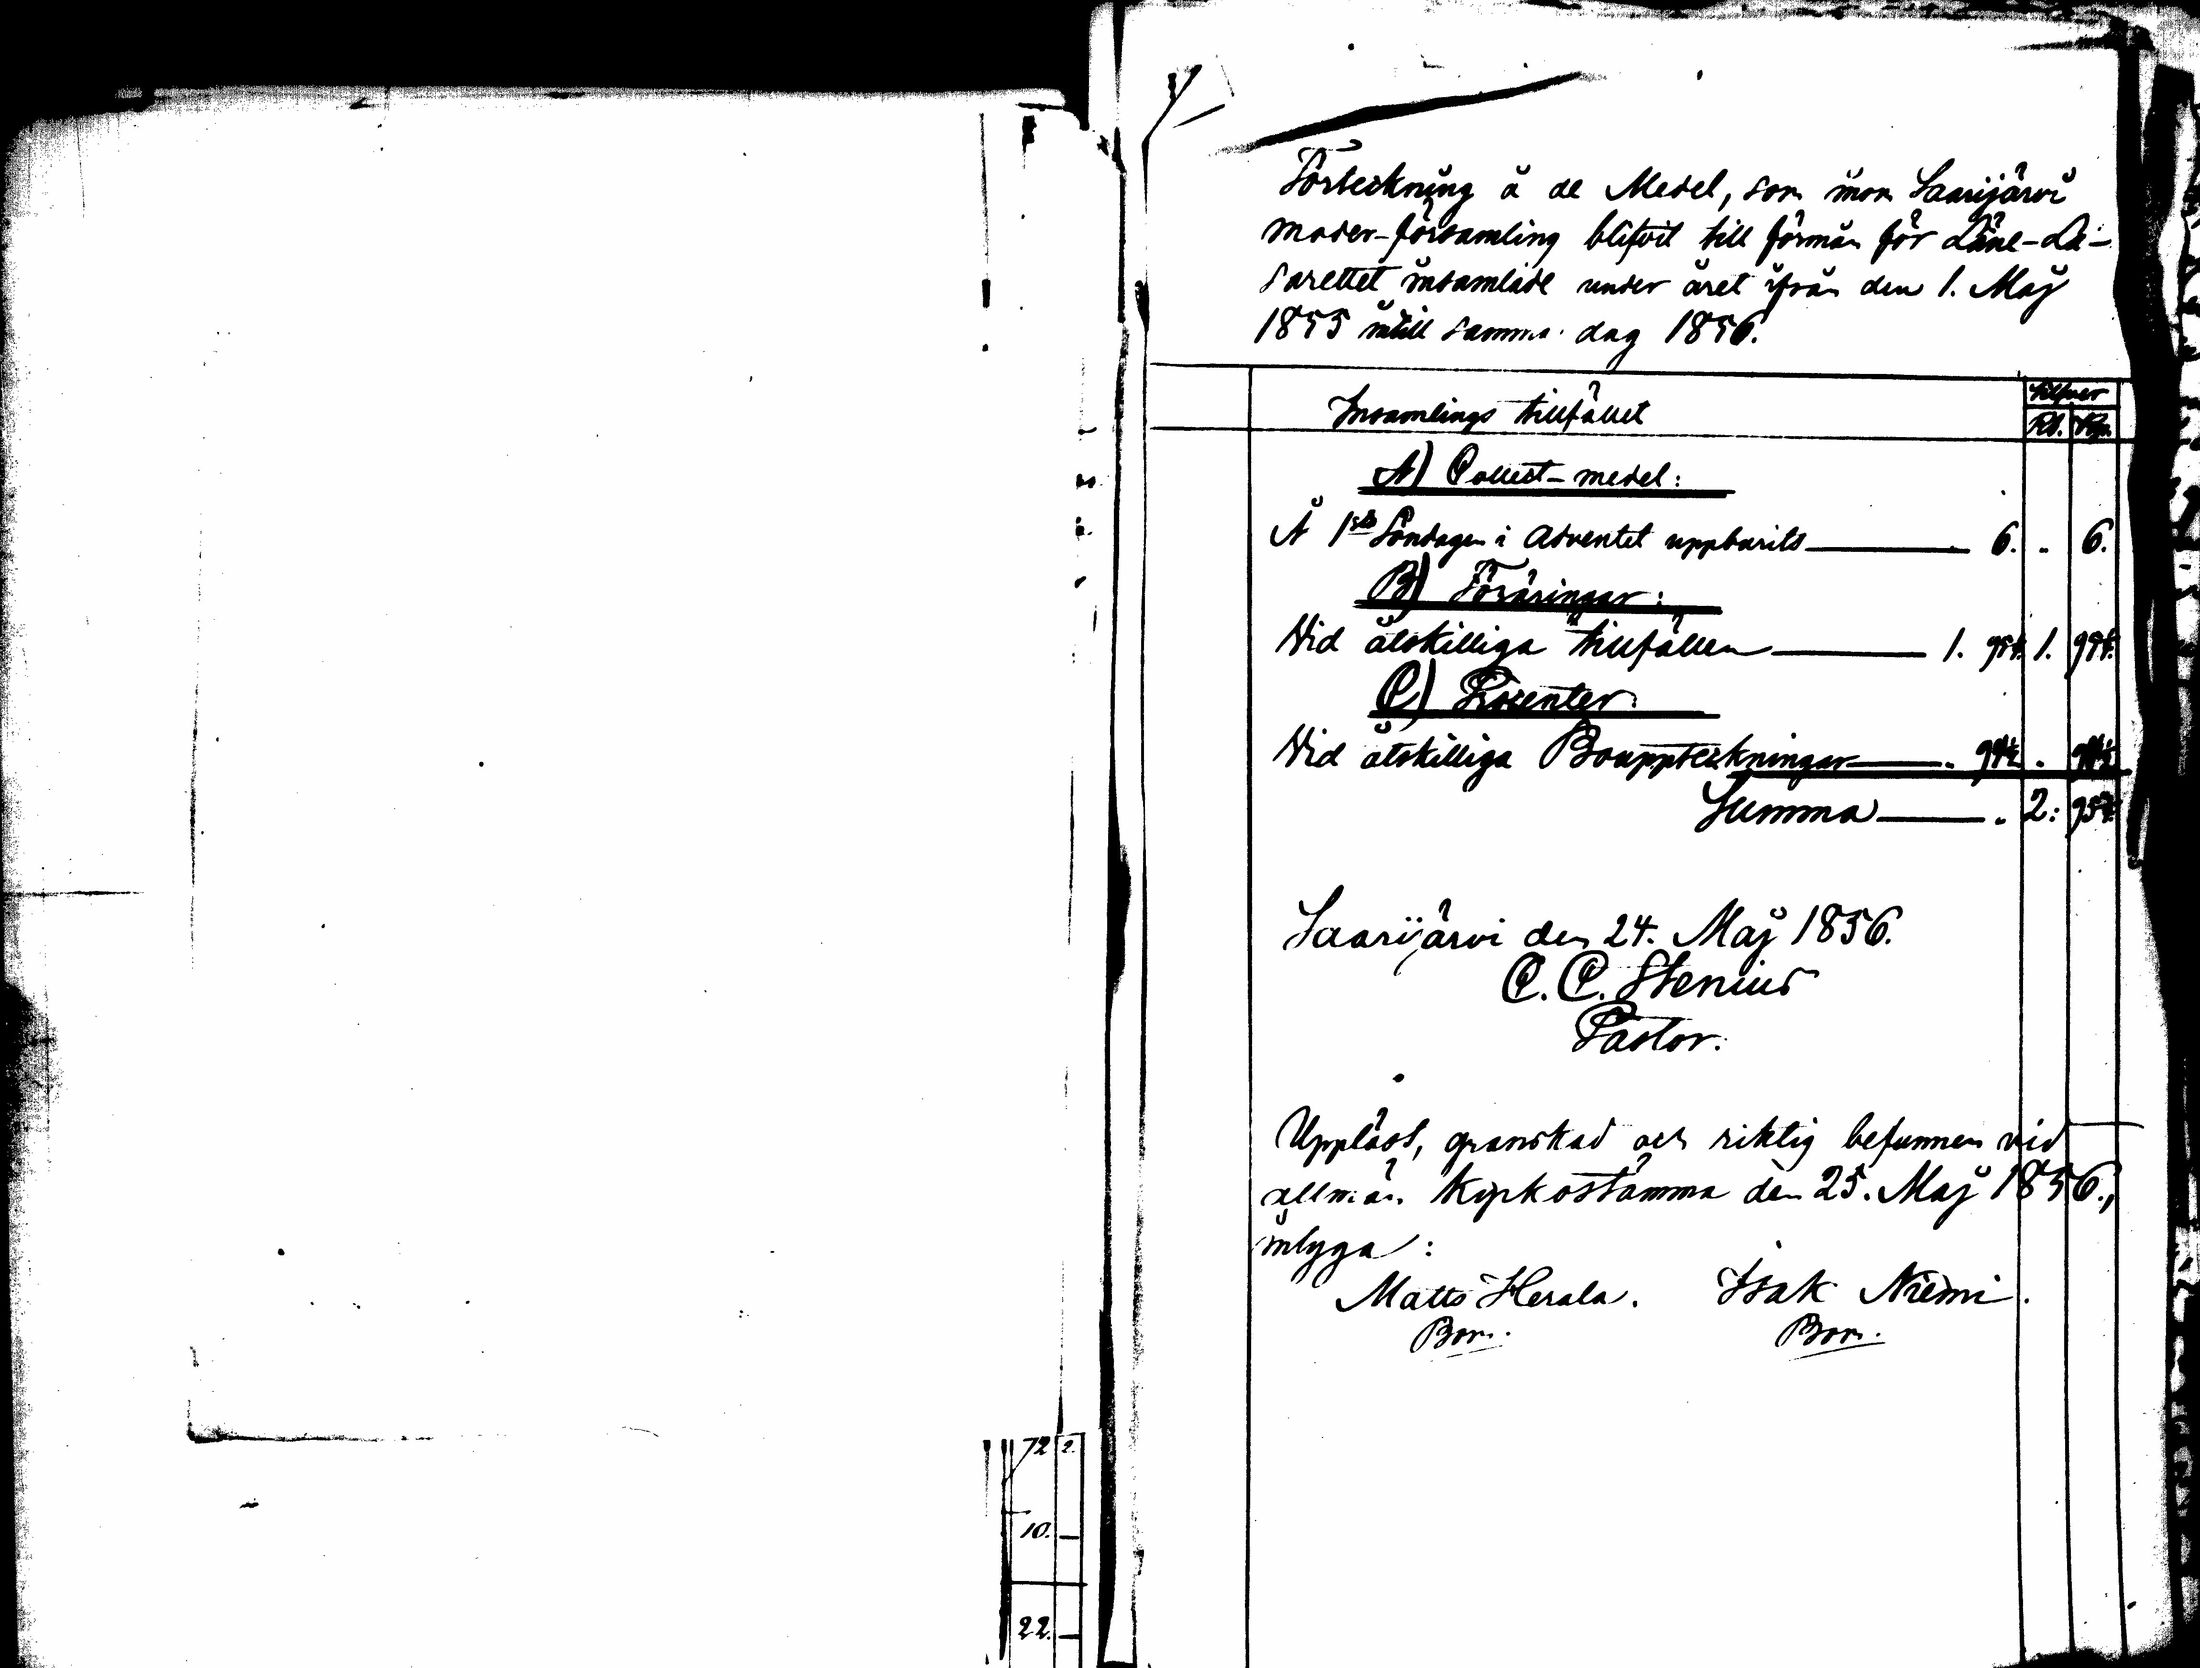 Förteckning å de Medel, som inom Saarijärvi
moder-församling blifvit till förmån för Läne-La-
sarettet insamlade under året ifrån den 1. Maj
1855 intill samma dag 1856.
Silfver
Insamlings tillfället
Rb. Kp.
A) Collect-medel:
Å 1sta Söndagen i Adventet uppburits 6. " 6.
B) Föräringar:
Vid åtskilliga tillfällen 1. 1.
C) Procenter.
Vid åtskilliga Bouppteckningar
Summa 2:
Saarijärvi den 24. Maj 1856.
C. C. Stenius
Pastor.
Uppläst, granskad och riktig befunnen vid
allmän Kyrkostämma den 25. Maj 1856.,
intyga:
Matts Herala. Isak Niemi.
Bon. Bon.
72 2.
10. —
22. —